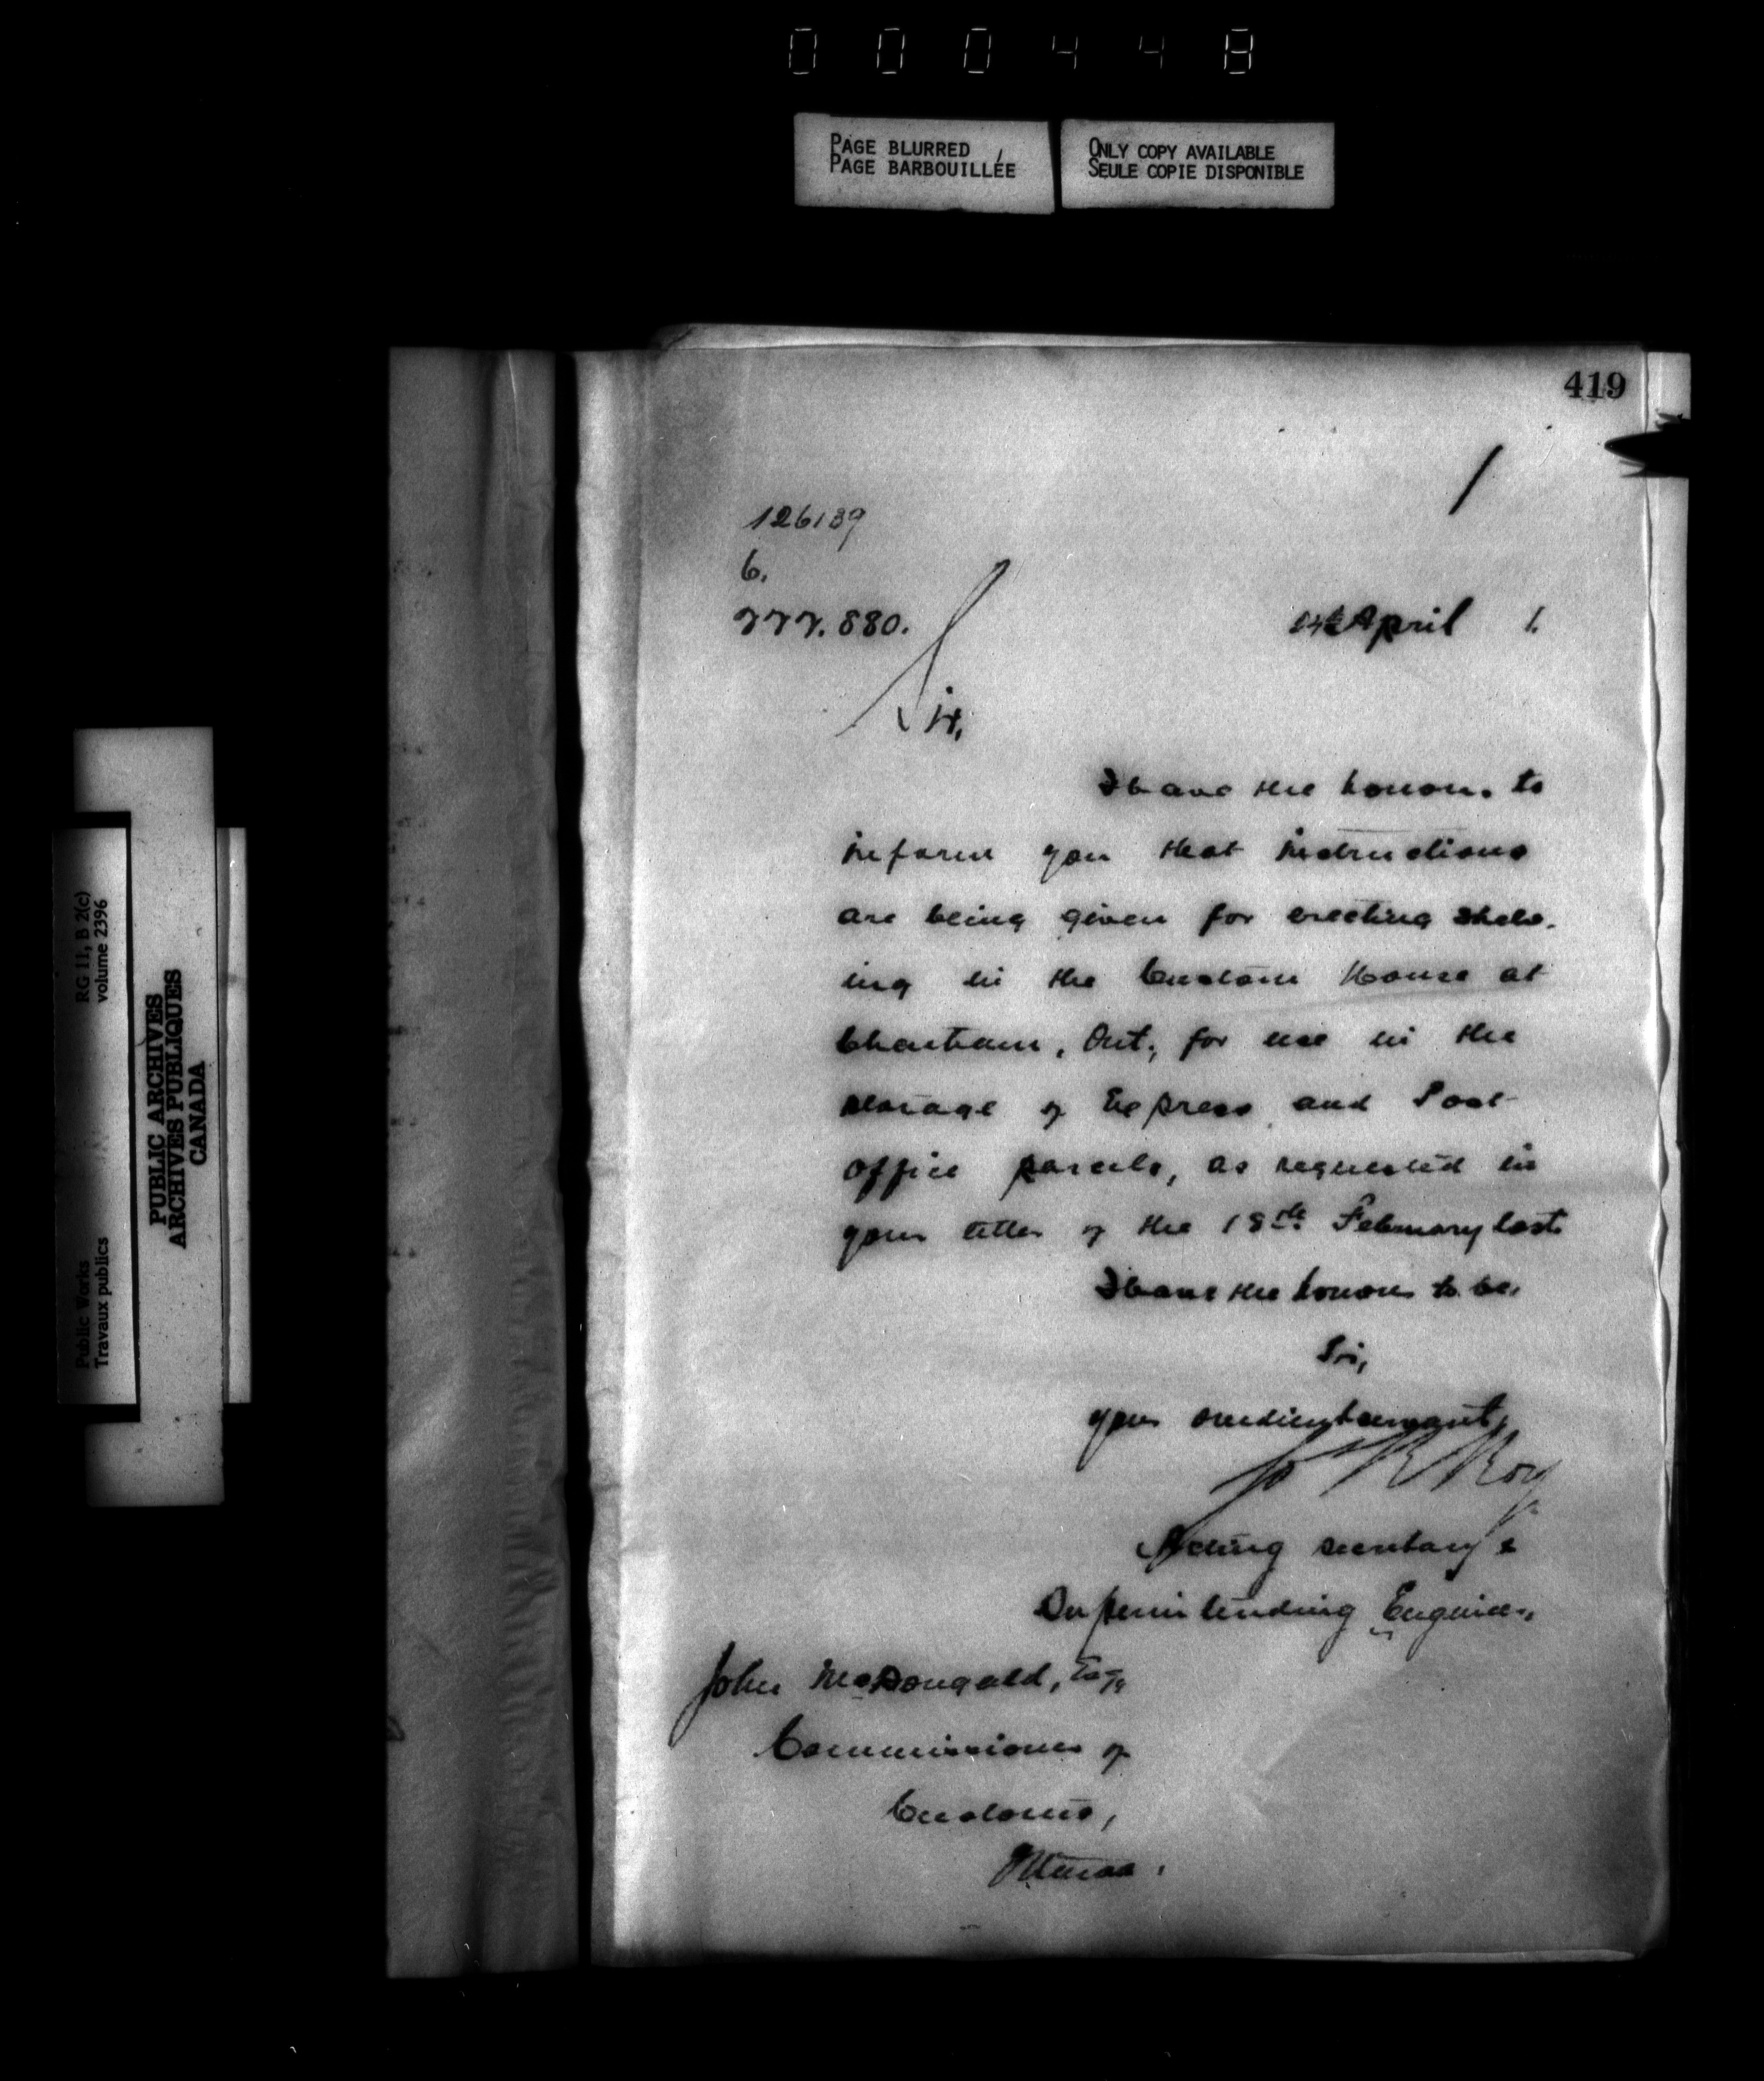 000448
PAGE BLURRED
PAGE BARBOUILLÉE
ONLY COPY AVAILABLE
SEULE COPIE DISPONIBLE
419
126139
6.
880.
April 1.
Sir,
I have the honour to
inform you that instructions
are being given for erecting shelv-
ing in the Custom House at
Chatham, Ont., for use in the
storage of Express and Post
Office parcels, as requested in
your letter of the 18th February last.
I have the honour to be,
Sir,
your obedient servant,
Roy
Acting Secretary &
Superintending Engineer,
John McDougald, Esq,
Commissioner of
Customs,
Ottawa.
RG 11, B 2(c)
volume 2396
Public Works
Travaux publics
PUBLIC ARCHIVES
ARCHIVES PUBLIQUES
CANADA